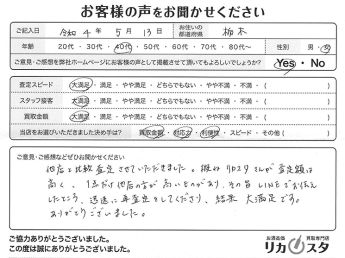 お客様の声をお聞かせください
ご記入日 令和 4 年 5 月 13 日 お住いの都道府県 栃木
年齢 20代・30代・40代・50代・60代・70代・80代〜 性別 男・女
ご意見・ご感想を弊社ホームページにお客様の声として掲載させて頂いてもよろしいでしょうか? Yes・No
査定スピード 大満足・満足・やや満足・どちらでもない・やや不満・不満・( )
スタッフ接客 大満足・満足・やや満足・どちらでもない・やや不満・不満・( )
買取金額 大満足・満足・やや満足・どちらでもない・やや不満・不満・( )
当店をお選びいただきました決め手は? 買取金額・対応力・利便性・スピード・その他( )
ご意見・ご感想などぜひお聞かせください
他店と比較査定させていただきました。概ねリカスタさんが査定額は
高く、1点だけ他店の方が高いものがあり、その旨LINEでお伝えし
たところ、迅速に再査定をしてくださり、結果大満足です。
ありがとうございました。
ご協力ありがとうございました。
この度は誠にありがとうございました。
お酒高価買取専門店
リカスタ